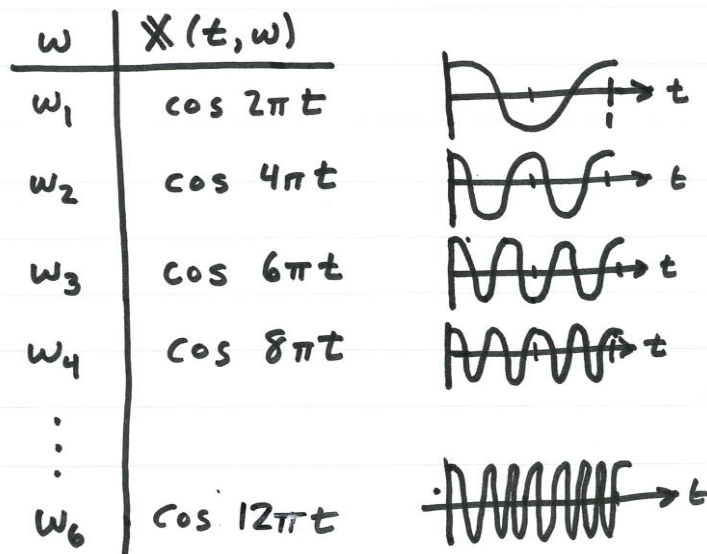 ω X(t, ω)
ω₁ cos 2πt t
1
ω₂ cos 4πt t
ω₃ cos 6πt t
ω₄ cos 8πt t
⋮
ω₆ cos 12πt t